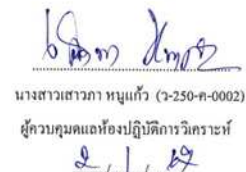 นางสาวเสาวภา หนูแก้ว (ว-250-ค-0002)
ผู้ควบคุมดูแลห้องปฏิบัติการวิเคราะห์